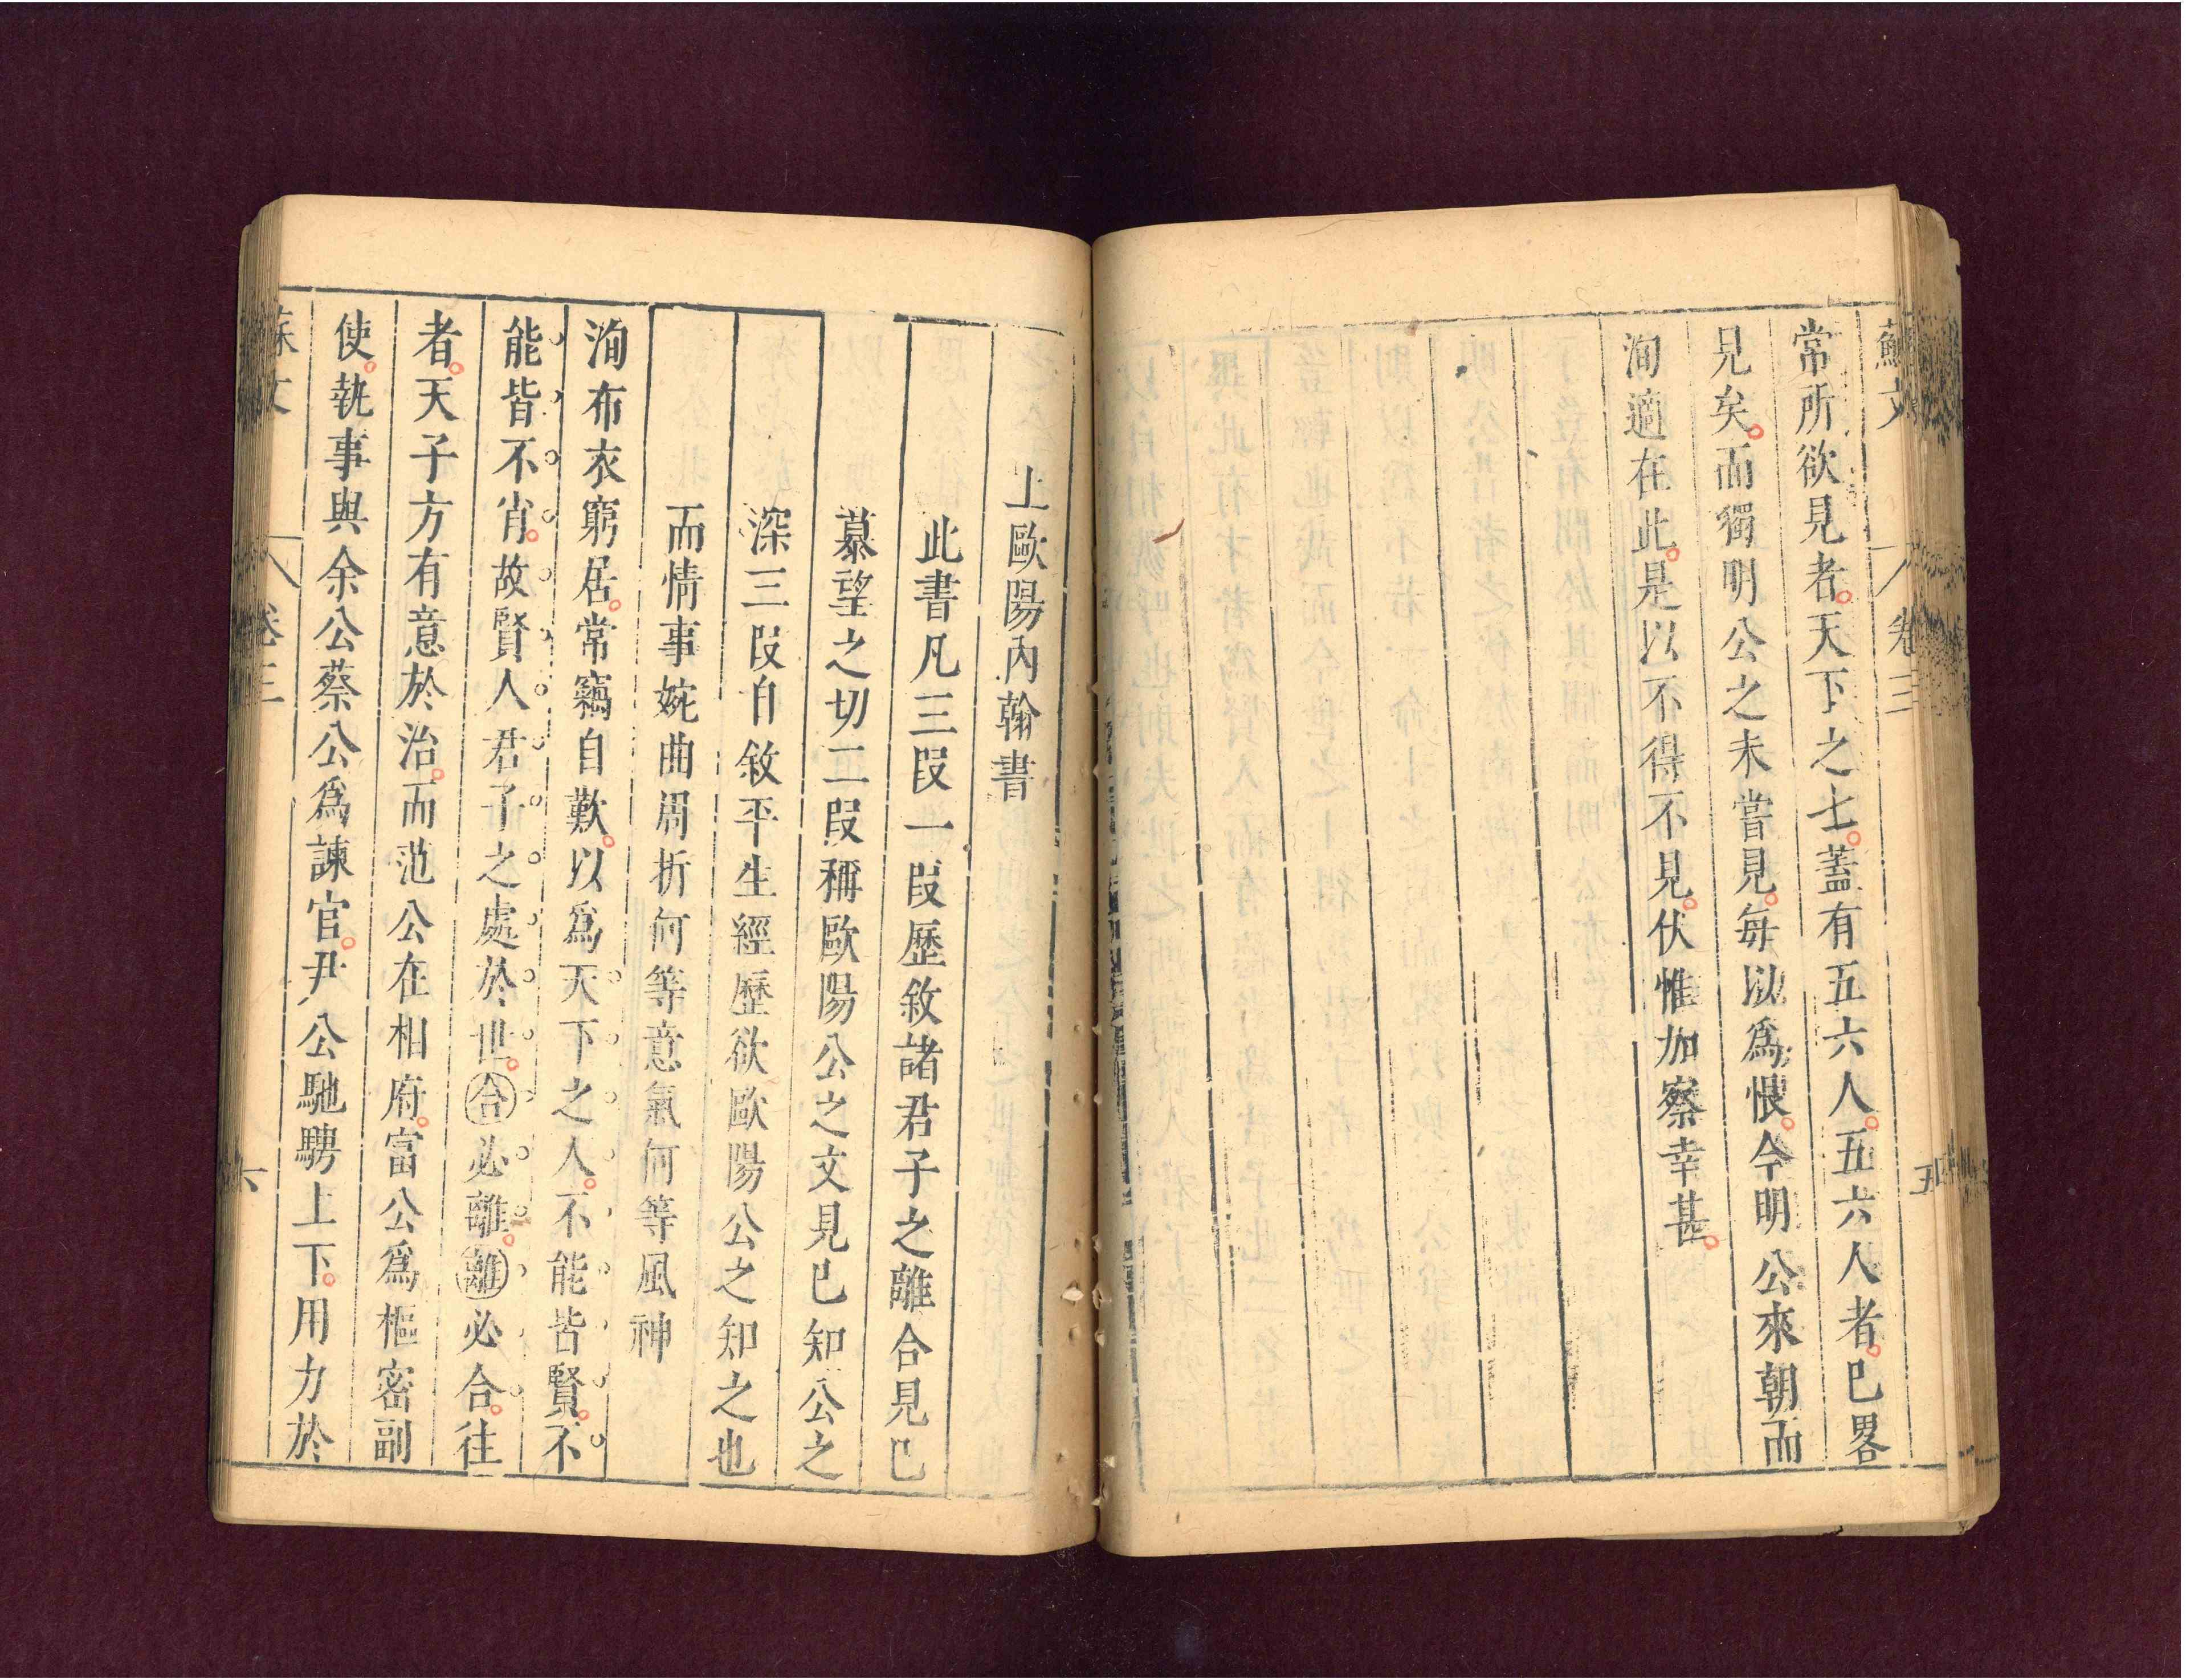 蘇文 卷三 五
常所欲見者天下之七蓋有五六人五六人者已畧
見矣而獨明公之未嘗見每以爲恨今明公來朝而
洵適在此是以不得不見伏惟加察幸甚
上歐陽內翰書
此書凡三段一段歷敘諸君子之離合見已
慕望之切二段稱歐陽公之文見已知公之
深三段自敘平生經歷欲歐陽公之知之也
而情事婉曲周折何等意氣何等風神
洵布衣窮居常竊自歎以爲天下之人不能皆賢不
能皆不肖故賢人君子之處於世合必離離必合往
者天子方有意於治而范公在相府富公爲樞密副
使執事與余公蔡公爲諫官尹公馳騁上下用力於
蘇文 卷三 六